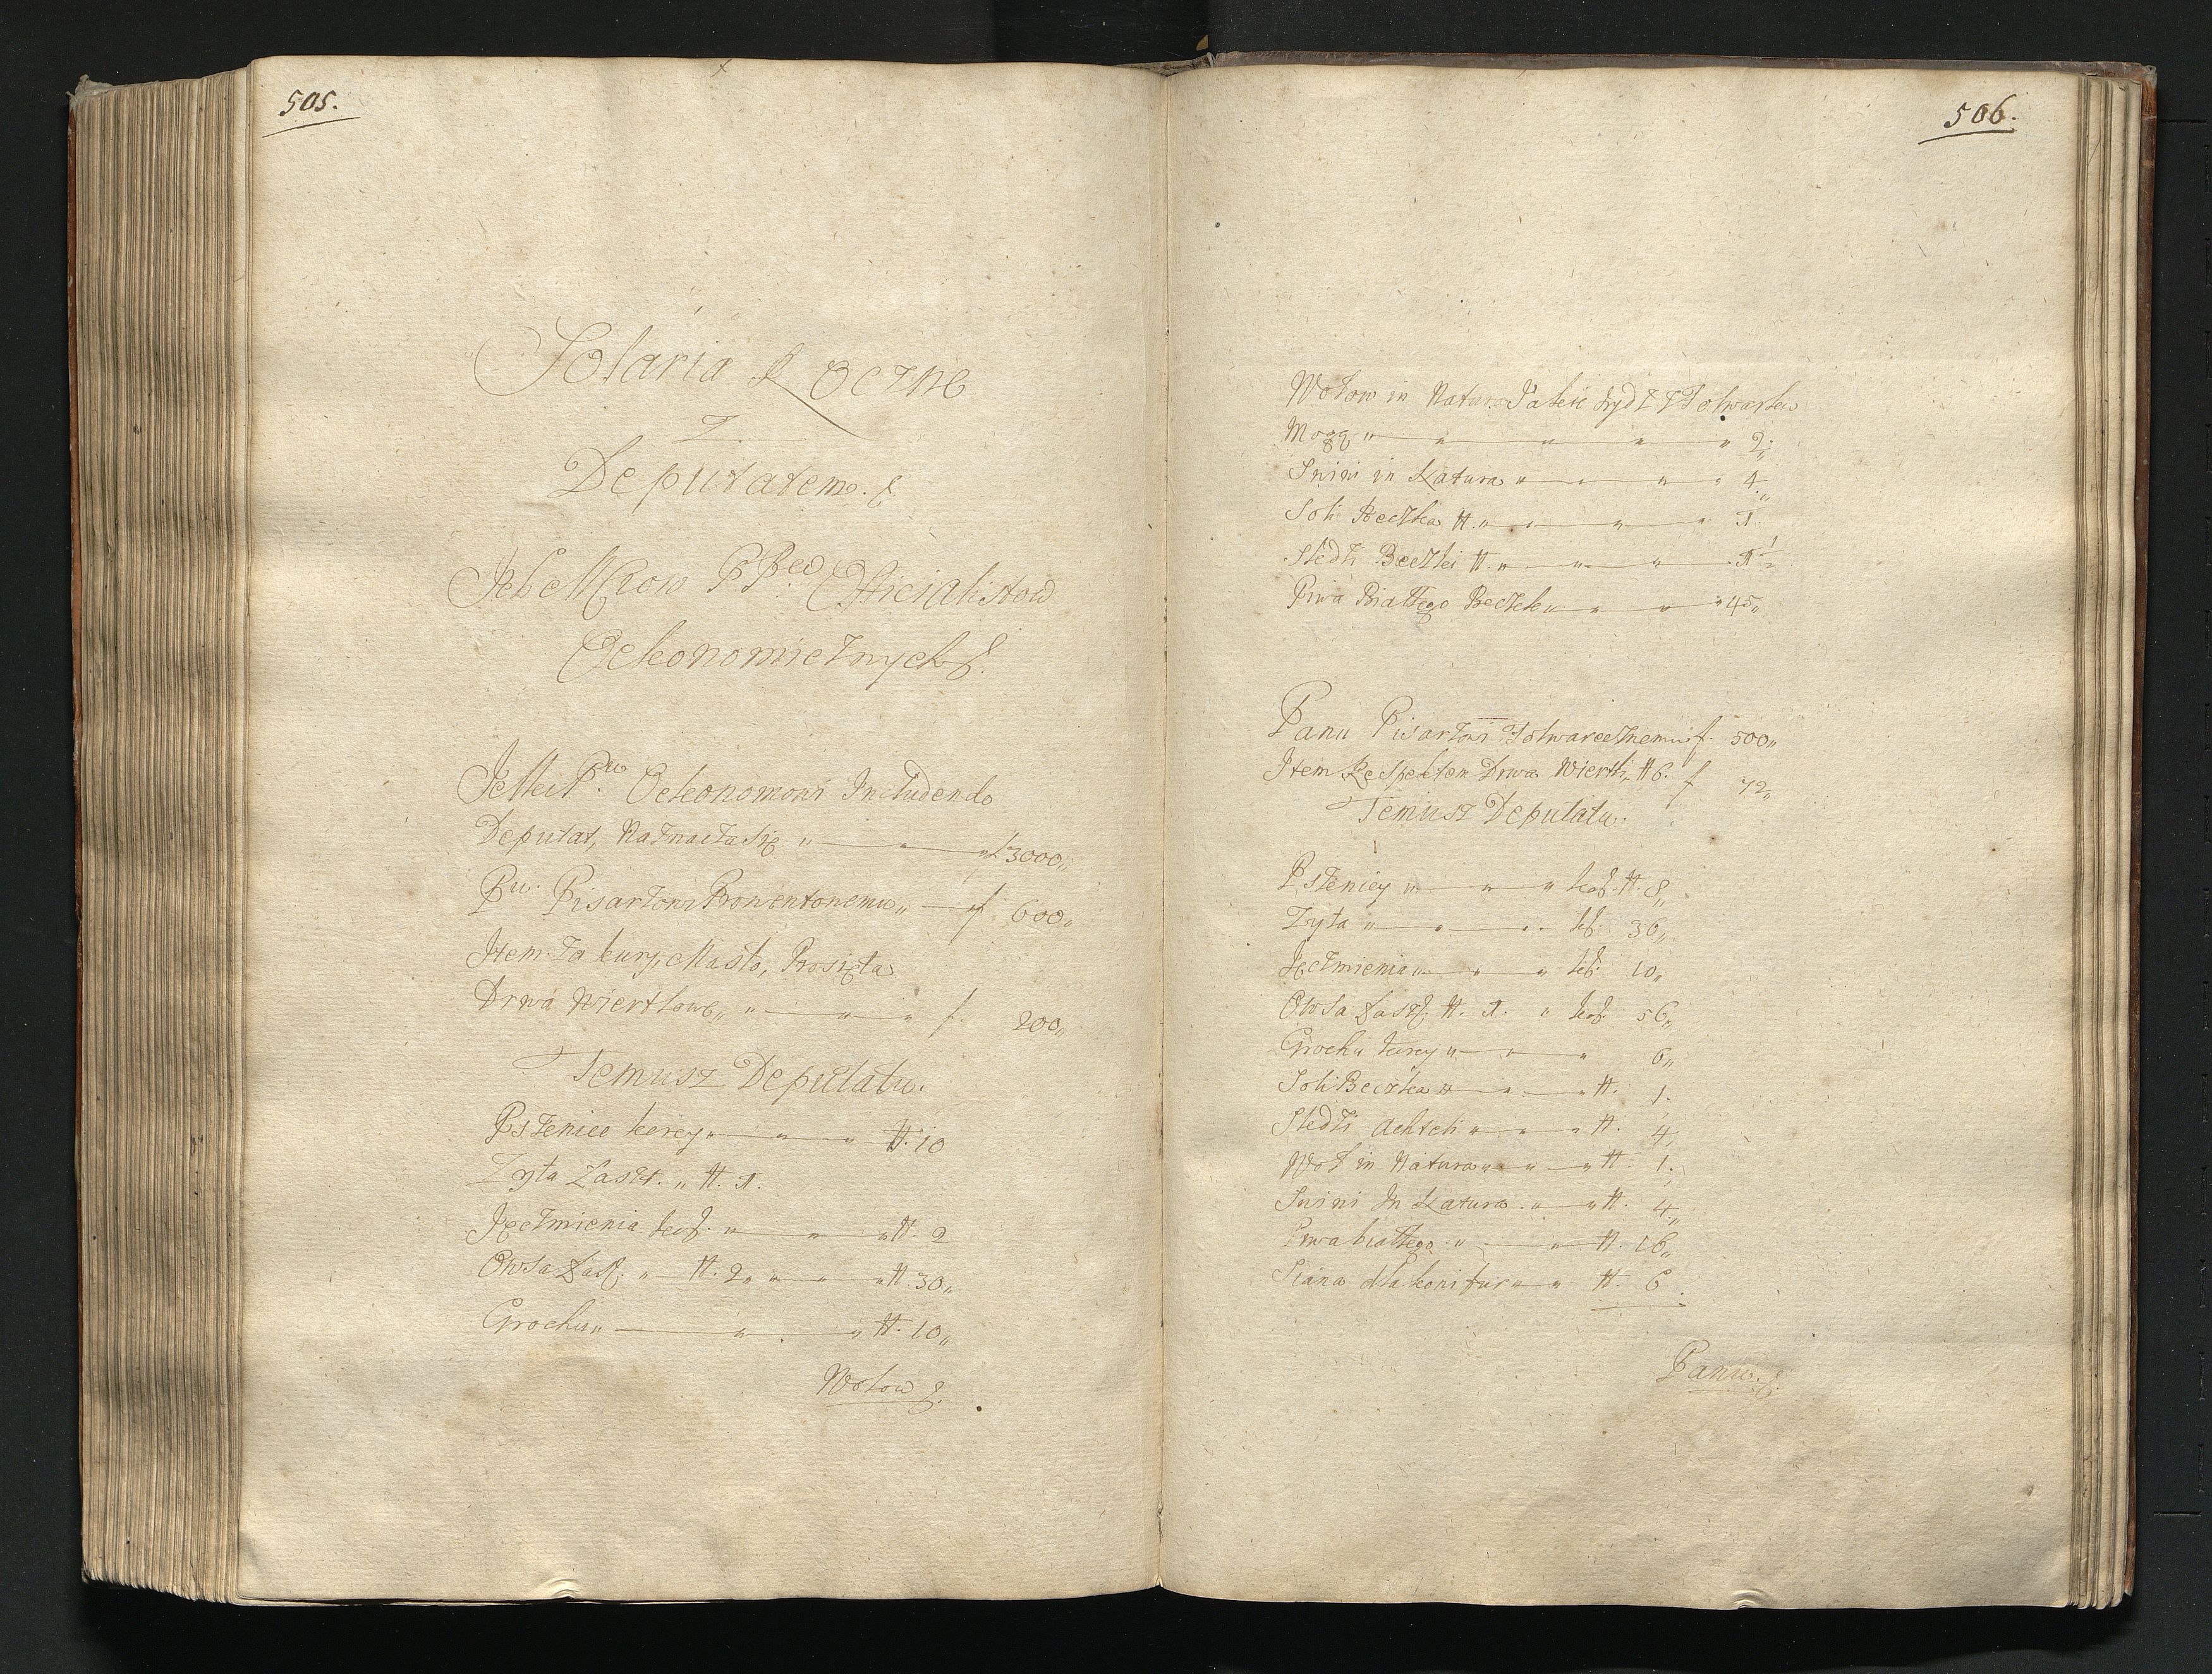 505.
Solaria Roczne
Z
Deputatem.
Officialistow
Oekonomicznych
Oekonomowi Includendo
Deputat, Naznacza się f 3000
Pu. Pisarzowi Prowentowemu f 600
Item za kury, Masło, Prosięta
Drwa Wiertlowe f. 200
Temusz Deputatu.
Pszenice korcy № 10
Zyta Łaszt. № 1.
Jęczmienia koŕ. № 2
Owsa Łaszt. № 2 № 30
Grochu № 10
Wołow
506.
Wołow in Natura Jakie z Folwarkow
Mogą 2
Swini in Natura 4
Soli Beczka № 1
Sledzi Beczki № 1½
Piwa Białłego Beczek 45
Panu Pisarzowi Folwarcznemu f. 500
Item Respektem Drwa Wiertli № 6. f 72
Temusz Deputatu.
Pszenicy koŕ. № 8
Zyta koŕ. 36
Jęczmienia koŕ. 10
Owsa Łaszt. № 1. koŕ. 56
Grochu korcy 6
Soli Beczka № 1.
Sledzi Achteli № 4
Woł in Natura № 1.
Swini In Natura № 4
Piwa białłego № 16
Siana dla koni fur № 6.
Panu